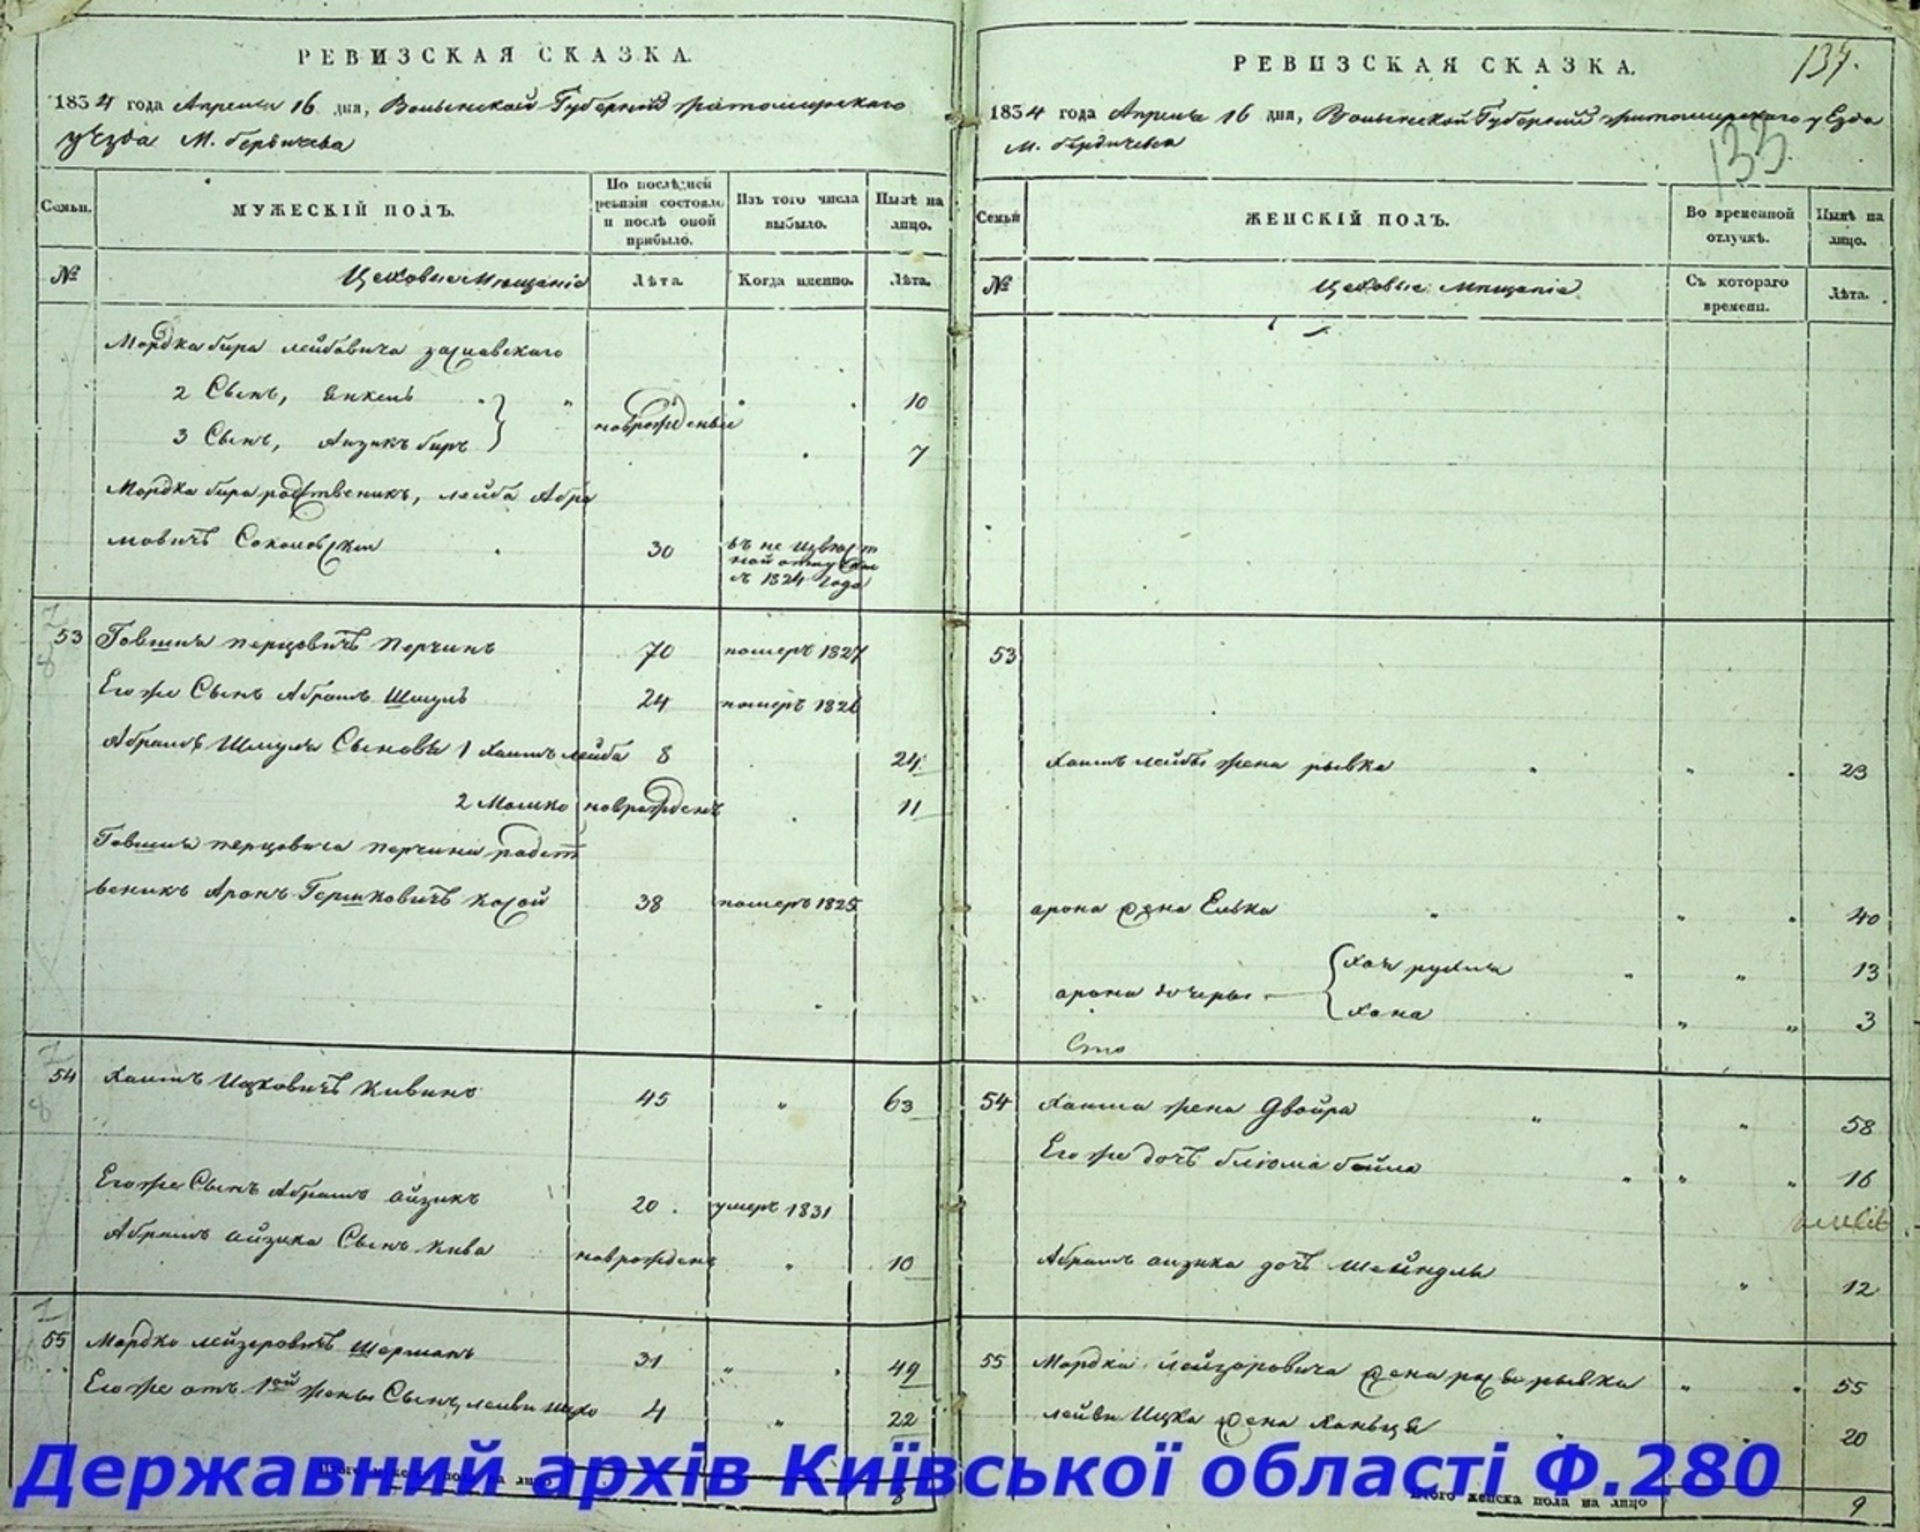 РЕВИЗСКАЯ СКАЗКА.
1834 года Апреля 16 дня, Волынской Губернии Житомирского
уезда М. бердичева
Семьи.
МУЖЕСКІЙ ПОЛЪ.
По послѣдней ревизіи состояло и послѣ оной прибыло.
Изъ того числа выбыло.
Нынѣ на лицо.
№
Цеховые Мещаніе
Лѣта.
Когда именно.
Лѣта.
Мордка бира лейбовича заславского
2 Сынъ, Янкель 10
3 Сынъ, Аизикъ биръ новрожденые 7
Мордка бира родственикъ, лейба Абра
мовичъ Соколовский 30 въ не извест
ной отлучки
съ 1824 года
53 Говшия перцовичъ Перчинъ 70 померъ 1827
Его же Сынъ Абрамъ Шмуль 24 померъ 1826
Абрамъ Шмуля Сыновья 1 Хаимъ лейба 8 24
2 Мошко новрожденъ 11
Говшия перцовича перчина родст
веникъ Аронъ Гершковичъ Косой 38 померъ 1825
54 Хаимъ Ицковичъ Кивинъ 45 63
Его же Сынъ Абрамъ айзикъ 20 умеръ 1831
Абрамъ айзика Сынъ Кива новрожденъ 10
55 Мордко лейзеровичъ Шерманъ 31 49
Его же отъ 1ой жены Сынъ, лейви Ицко 4 22
8
РЕВИЗСКАЯ СКАЗКА.
137.
1834 года Апреля 16 дня, Волынской Губернии житомирского уезда
М. бердичева
133
Семьи
ЖЕНСКІЙ ПОЛЪ.
Во временной отлучкѣ.
Нынѣ на лицо.
№
Цеховые Мещаніе
Съ котораго времени.
Лѣта.
53
Хаимъ лейбы жена рывка 23
арона жена Елька 40
арона дочеры Хая рухля 13
Хана 3
54 Хаима жена Двойра 58
Его же дочъ блюма бейла 16
Абрамъ аизика дочъ шейндля 12
55 Мордка лейзоровича жена рыся рывка 55
лейви Ицка жена Ханьця 20
Итого женска пола на лицо 9
Державний архів Київської області Ф.280